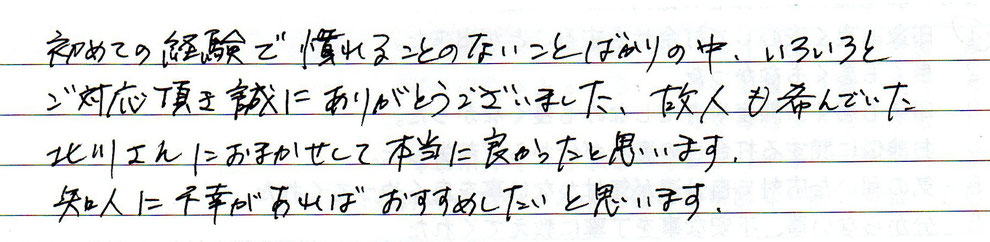 初めての経験で慣れることのないことばかりの中、いろいろと
ご対応頂き誠にありがとうございました。故人も希んでいた
北川さんにおまかせして本当に良かったと思います。
知人に不幸があればおすすめしたいと思います。